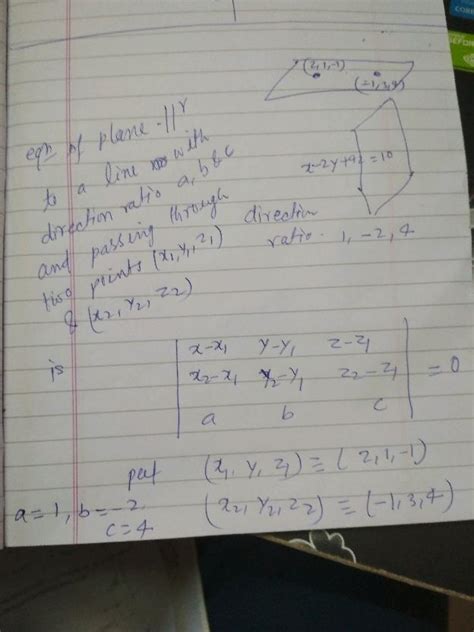 (2,1,-1)
(-1,3,4)
eqn of plane ||r
to a line with
direction ratio a, b & c
and passing through
two points (x1, y1, z1)
& (x2, y2, z2)
x-2y+4z=10
direction
ratio. 1, -2, 4
is
| x-x1 y-y1 z-z1 |
| x2-x1 y2-y1 z2-z1 | = 0
| a b c |
put (x1, y, z1) ≡ (2,1,-1)
a=1, b=-2 (x2, y2, z2) ≡ (-1,3,4)
c=4